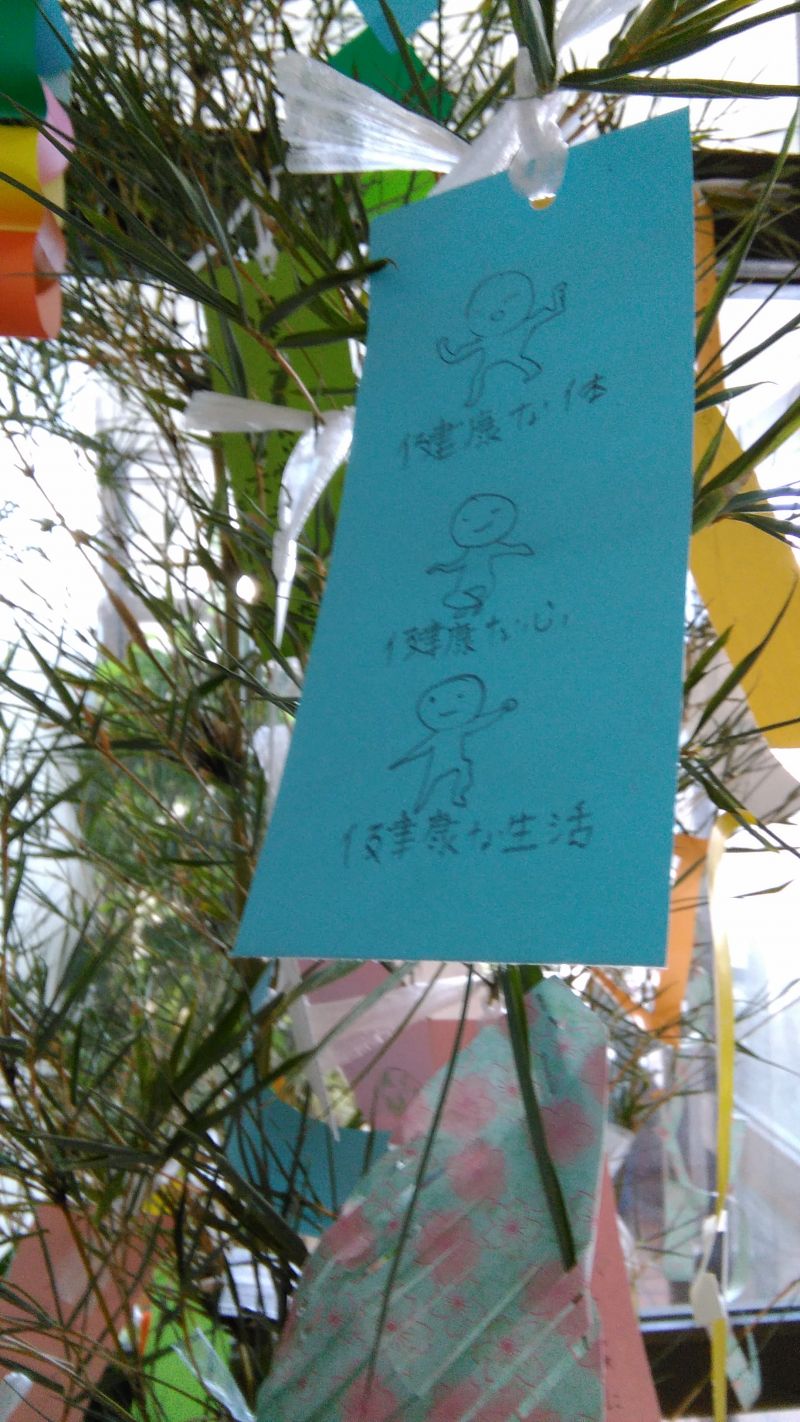 健康な体
健康な心
健康な生活